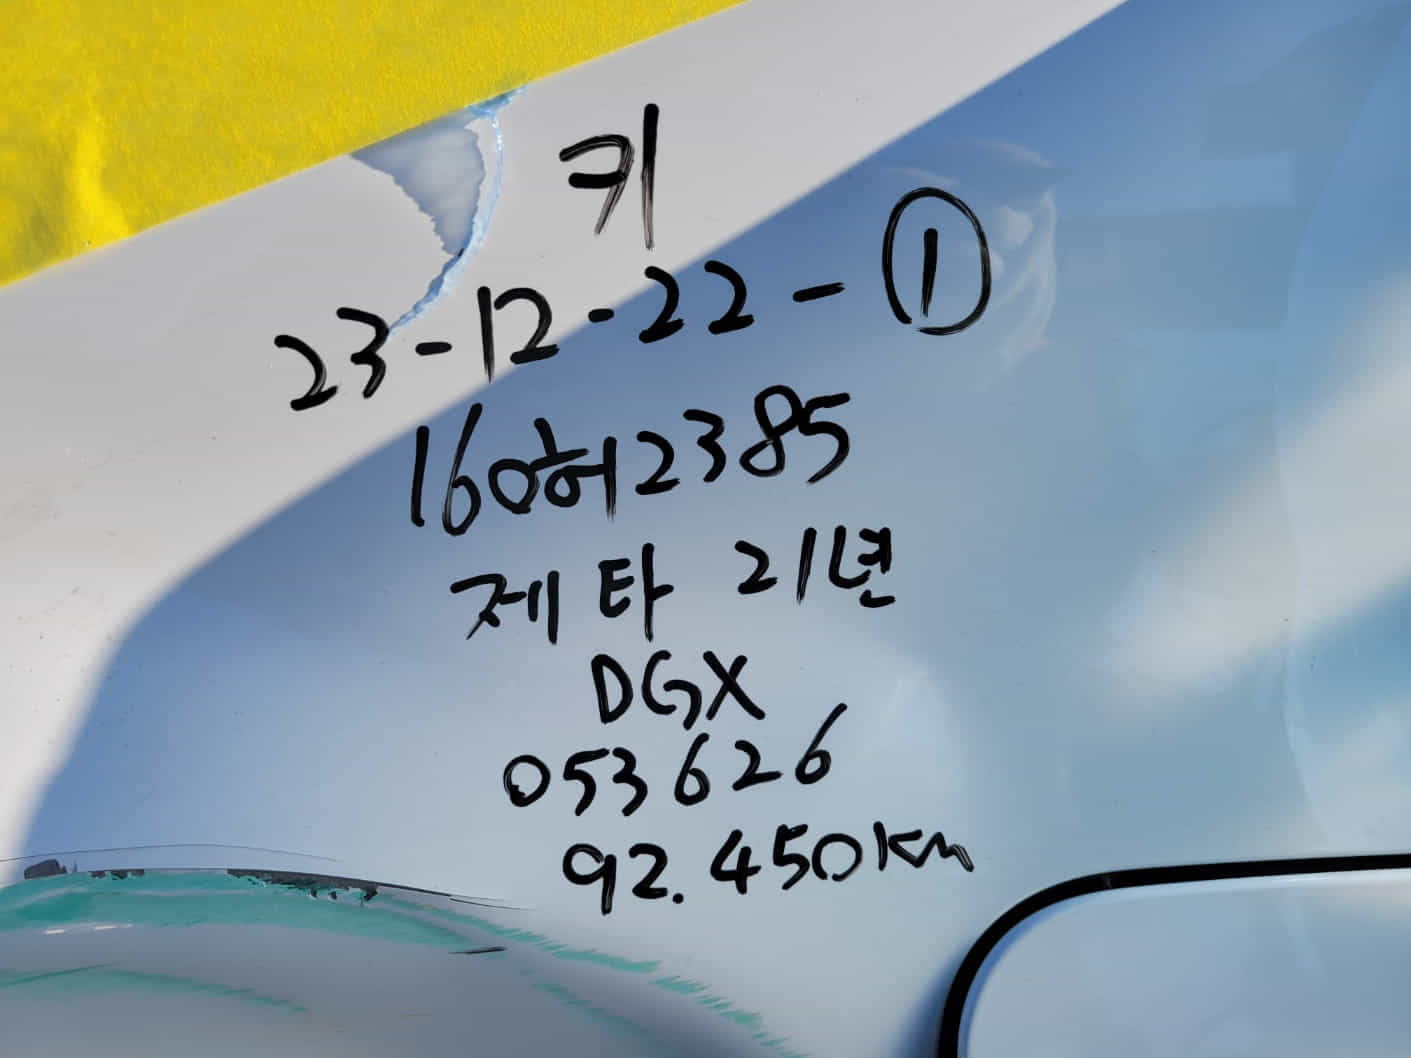 키
23-12-22-①
160허2385
제타 21년
DGX
053626
92.450km